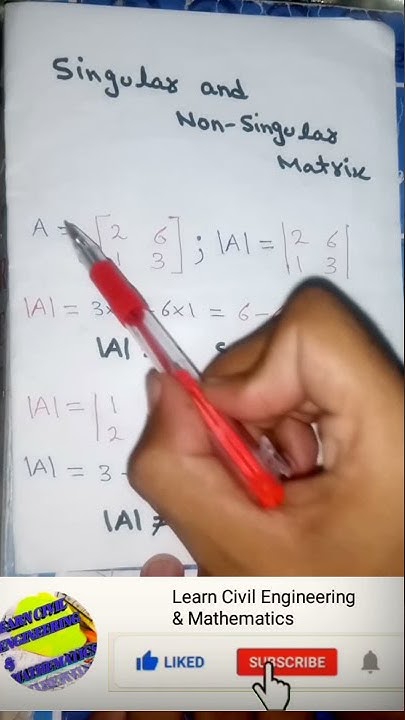 Singular and
Non-Singular
Matrix
A = [2 6; |A| = |2 6|
1 3] |1 3|
|A| = 3× -6×1 = 6-
|A|
|A| = |1
|2
|A| = 3
|A| ≠
LEARN CIVIL
ENGINEERING
&
MATHEMATICS
Learn Civil Engineering
& Mathematics
LIKED
SUBSCRIBE